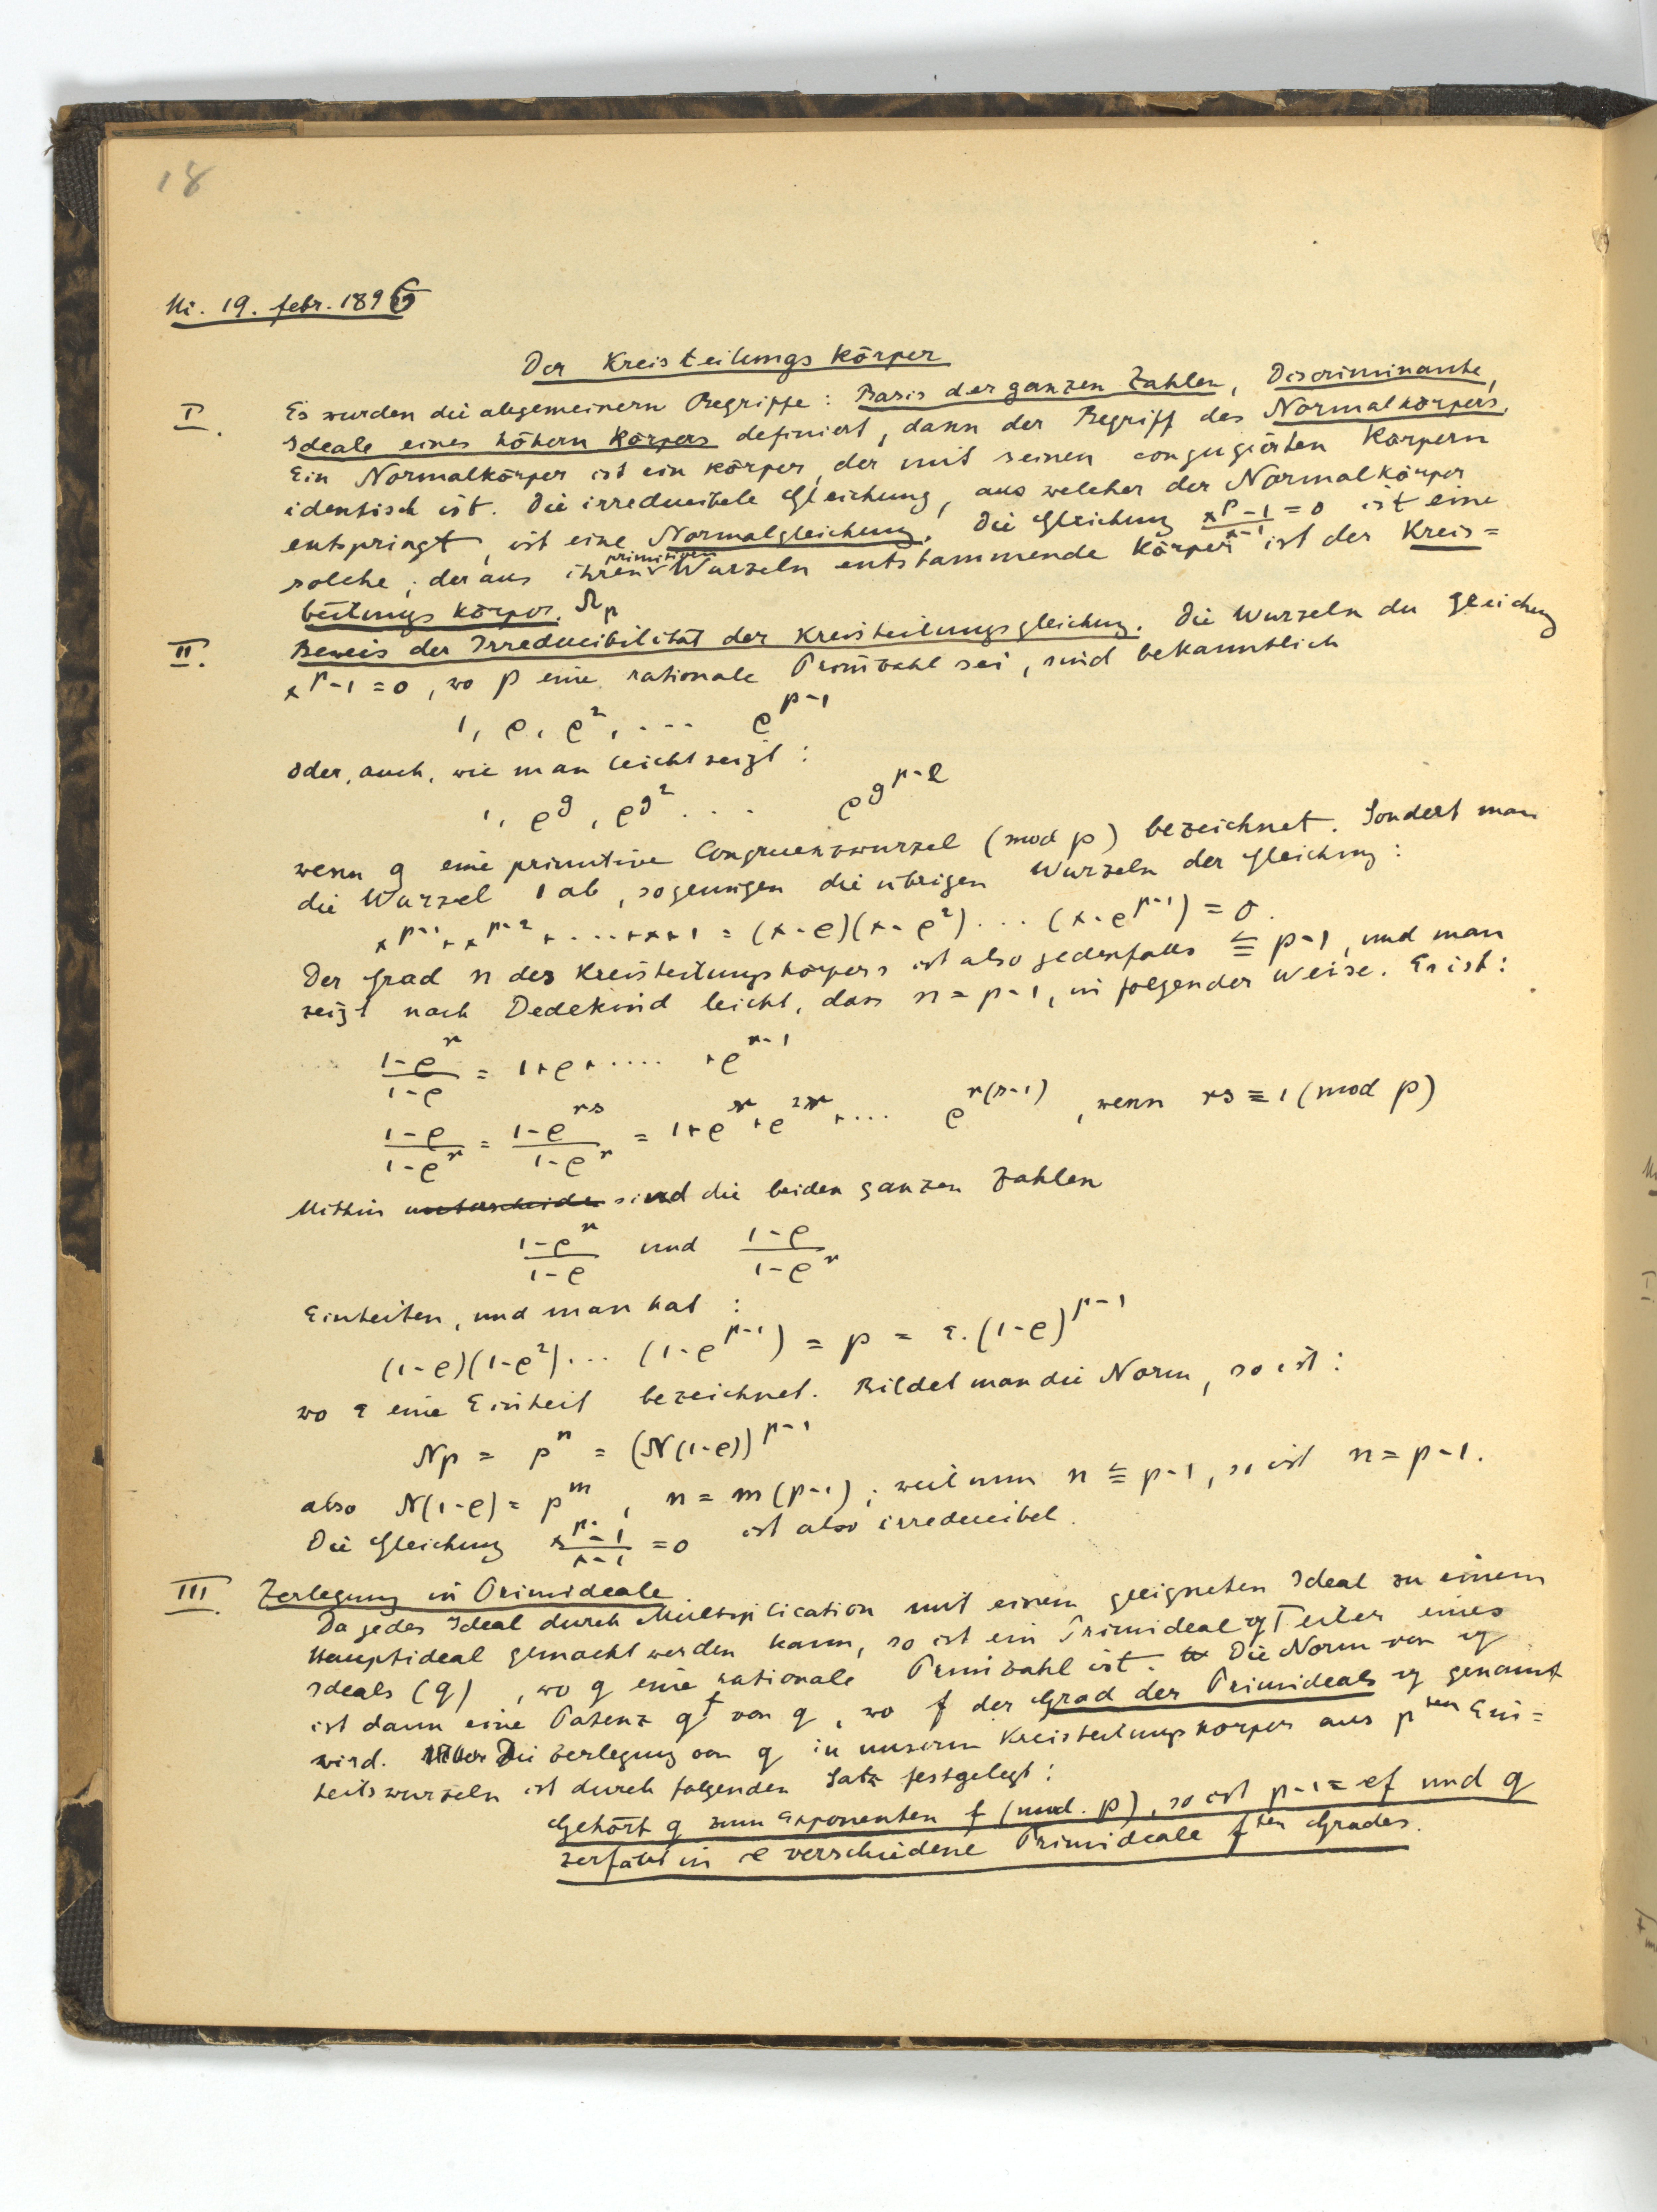 18
Mi. 19. Febr. 1896
Der Kreisteilungskörper
I. Es wurden die allgemeinern Begriffe: Basis der ganzen Zahlen, Discriminante,
Ideale eines höhern Körpers definiert, dann der Begriff des Normalkörpers.
Ein Normalkörper ist ein Körper, der mit seinen conjugierten Körpern
identisch ist. Die irreducibele Gleichung, aus welcher der Normalkörper
entspringt, ist eine Normalgleichung. Die Gleichung (x^p-1)/(x-1) = 0 ist eine
solche; der aus ihren primitiven Wurzeln entstammende Körper ist der Kreis=
teilungskörper. Ω_p
II. Beweis der Irreducibilität der Kreisteilungsgleichung. Die Wurzeln der Gleichung
x^p-1 = 0, wo p eine rationale Primzahl sei, sind bekanntlich
1, ρ, ρ^2, .... ρ^{p-1}
oder, auch, wie man leicht zeigt:
1, ρ^g, ρ^{g^2} ... ρ^{g^{p-2}}
wenn g eine primitive Congruenzwurzel (mod p) bezeichnet. Sondert man
die Wurzel 1 ab, so genügen die übrigen Wurzeln der Gleichung:
x^{p-1}+x^{p-2}+....+x+1 = (x-ρ)(x-ρ^2)... (x-ρ^{p-1}) = 0.
Der Grad n des Kreisteilungskörpers ist also jedenfalls ≦ p-1, und man
zeigt nach Dedekind leicht, dass n = p-1, in folgender Weise. Es ist:
(1-ρ^r)/(1-ρ) = 1+ρ+..... +ρ^{r-1}
(1-ρ)/(1-ρ^r) = (1-ρ^{rs})/(1-ρ^r) = 1+ρ^r+ρ^{2r}+... ρ^{r(s-1)}, wenn rs ≡ 1 (mod p)
Mithin sind die beiden ganzen Zahlen
(1-ρ^r)/(1-ρ) und (1-ρ)/(1-ρ^r)
Einheiten, und man hat:
(1-ρ)(1-ρ^2)... (1-ρ^{p-1}) = p = ε.(1-ρ)^{p-1}
wo ε eine Einheit bezeichnet. Bildet man die Norm, so ist:
Np = p^n = (N(1-ρ))^{p-1}
also N(1-ρ) = p^m, n = m(p-1); weil nun n ≦ p-1, so ist n = p-1.
Die Gleichung (x^p-1)/(x-1) = 0 ist also irreducibel.
III. Zerlegung in Primideale
Da jedes Ideal durch Multiplication mit einem geeigneten Ideal zu einem
Hauptideal gemacht werden kann, so ist ein Primideal 𝔮 Teiler eines
Ideals (q), wo q eine rationale Primzahl ist. Die Norm von 𝔮
ist dann eine Potenz q^f von q, wo f der Grad des Primideals 𝔮 genannt
wird. Die Zerlegung von q in unserm Kreisteilungskörper aus p^{ten} Ein=
heitswurzeln ist durch folgenden Satz festgelegt:
Gehört q zum Exponenten f (mod. p), so ist p-1 = ef und q
zerfällt in e verschiedene Primideale f^{ten} Grades.